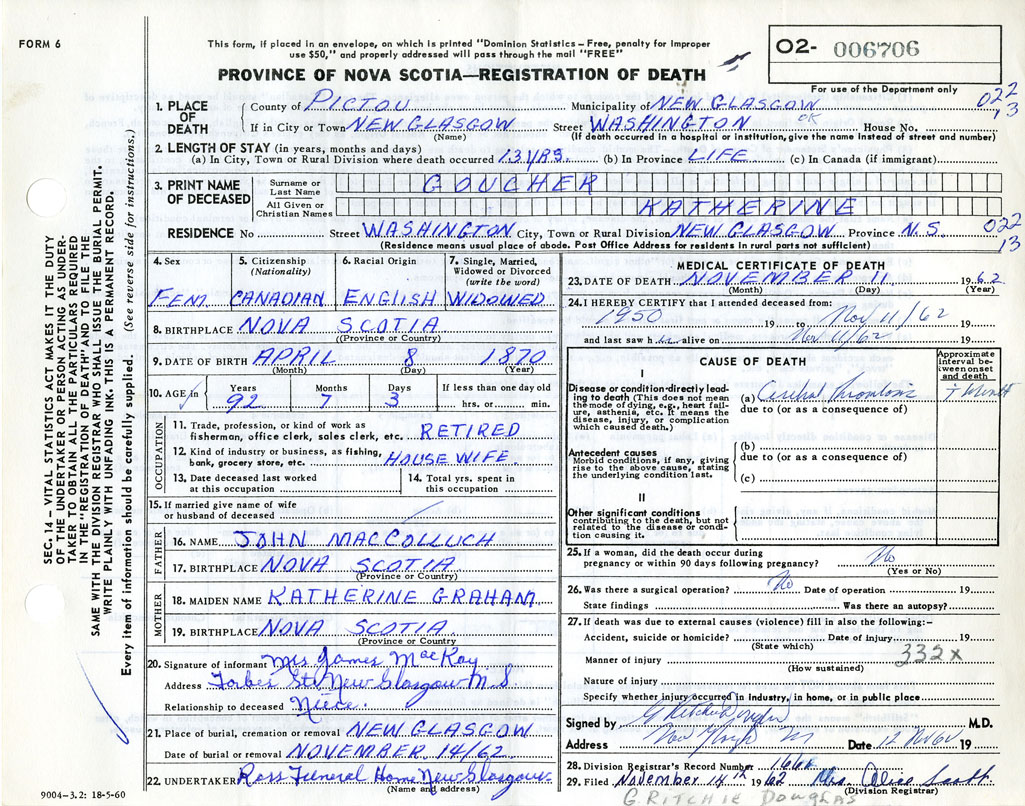 FORM 6
This form, if placed in an envelope, on which is printed "Dominion Statistics – Free, penalty for improper
use $50," and properly addressed will pass through the mail "FREE"
PROVINCE OF NOVA SCOTIA—REGISTRATION OF DEATH
02- 006706
For use of the Department only
022
13
1. PLACE OF DEATH
County of PICTOU Municipality of NEW GLASGOW
OK
If in City or Town NEW GLASGOW Street WASHINGTON House No.
(Name) (If death occurred in a hospital or institution, give the name instead of street and number)
2. LENGTH OF STAY (in years, months and days)
(a) In City, Town or Rural Division where death occurred 13 YRS. (b) In Province LIFE (c) In Canada (if immigrant)
3. PRINT NAME OF DECEASED
Surname or Last Name GOUCHER
All Given or Christian Names KATHERINE
RESIDENCE No Street WASHINGTON City, Town or Rural Division NEW GLASGOW Province N.S.
022
13
(Residence means usual place of abode. Post Office Address for residents in rural parts not sufficient)
4. Sex
FEM
5. Citizenship
(Nationality)
CANADIAN
6. Racial Origin
ENGLISH
7. Single, Married,
Widowed or Divorced
(write the word)
WIDOWED
8. BIRTHPLACE NOVA SCOTIA
(Province or Country)
9. DATE OF BIRTH APRIL 8 1870
(Month) (Day) (Year)
10. AGE in
Years Months Days If less than one day old
92 7 3 hrs. or min.
OCCUPATION
11. Trade, profession, or kind of work as
fisherman, office clerk, sales clerk, etc. RETIRED
12. Kind of industry or business, as fishing,
bank, grocery store, etc. HOUSE WIFE
13. Date deceased last worked
at this occupation
14. Total yrs. spent in
this occupation
15. If married give name of wife
or husband of deceased
FATHER
16. NAME JOHN MACCOLLUCH
17. BIRTHPLACE NOVA SCOTIA
(Province or Country)
MOTHER
18. MAIDEN NAME KATHERINE GRAHAM
19. BIRTHPLACE NOVA SCOTIA
(Province or Country)
20. Signature of informant Mrs James MacKay
Address Forbes St. New Glasgow N S
Relationship to deceased Niece.
21. Place of burial, cremation or removal NEW GLASGOW
Date of burial or removal NOVEMBER 14/62
22. UNDERTAKER Ross Funeral Home New Glasgow
(Name and address)
MEDICAL CERTIFICATE OF DEATH
23. DATE OF DEATH NOVEMBER 11 1962
(Month) (Day) (Year)
24. I HEREBY CERTIFY that I attended deceased from:
1950 19 to Nov 11/62 19
and last saw h er alive on Nov 11/62 19
CAUSE OF DEATH
Approximate
interval be-
tween onset
and death
I
Disease or condition directly lead-
ing to death (This does not mean
the mode of dying, e.g., heart fail-
ure, asthenia, etc. It means the
disease, injury, or complication
which caused death.)
(a) Cerebral Thrombosis
due to (or as a consequence of)
Antecedent causes
Morbid conditions, if any, giving
rise to the above cause, stating
the underlying condition last.
(b)
due to (or as a consequence of)
(c)
II
Other significant conditions
contributing to the death, but not
related to the disease or condi-
tion causing it.
25. If a woman, did the death occur during
pregnancy or within 90 days following pregnancy? No
(Yes or No)
26. Was there a surgical operation? No Date of operation 19
State findings Was there an autopsy?
27. If death was due to external causes (violence) fill in also the following:–
Accident, suicide or homicide? Date of injury 19
(State which)
332x
Manner of injury
(How sustained)
Nature of injury
Specify whether injury occurred in industry, in home, or in public place
Signed by G Ritchie Douglas M.D.
Address New Glasgow NS Date 12 Nov 19
28. Division Registrar's Record Number
29. Filed November 14th 1962 Mrs. Alice Scott
(Division Registrar)
G. RITCHIE DOUGLAS
SEC. 14 – VITAL STATISTICS ACT MAKES IT THE DUTY
OF THE UNDERTAKER OR PERSON ACTING AS UNDER-
TAKER TO OBTAIN ALL THE PARTICULARS REQUIRED
IN THE "REGISTRATION OF DEATH" AND TO FILE THE
SAME WITH THE DIVISION REGISTRAR WHO SHALL ISSUE THE BURIAL PERMIT.
WRITE PLAINLY WITH UNFADING INK. THIS IS A PERMANENT RECORD.
Every item of information should be carefully supplied. (See reverse side for instructions.)
9004-3.2: 18-5-60